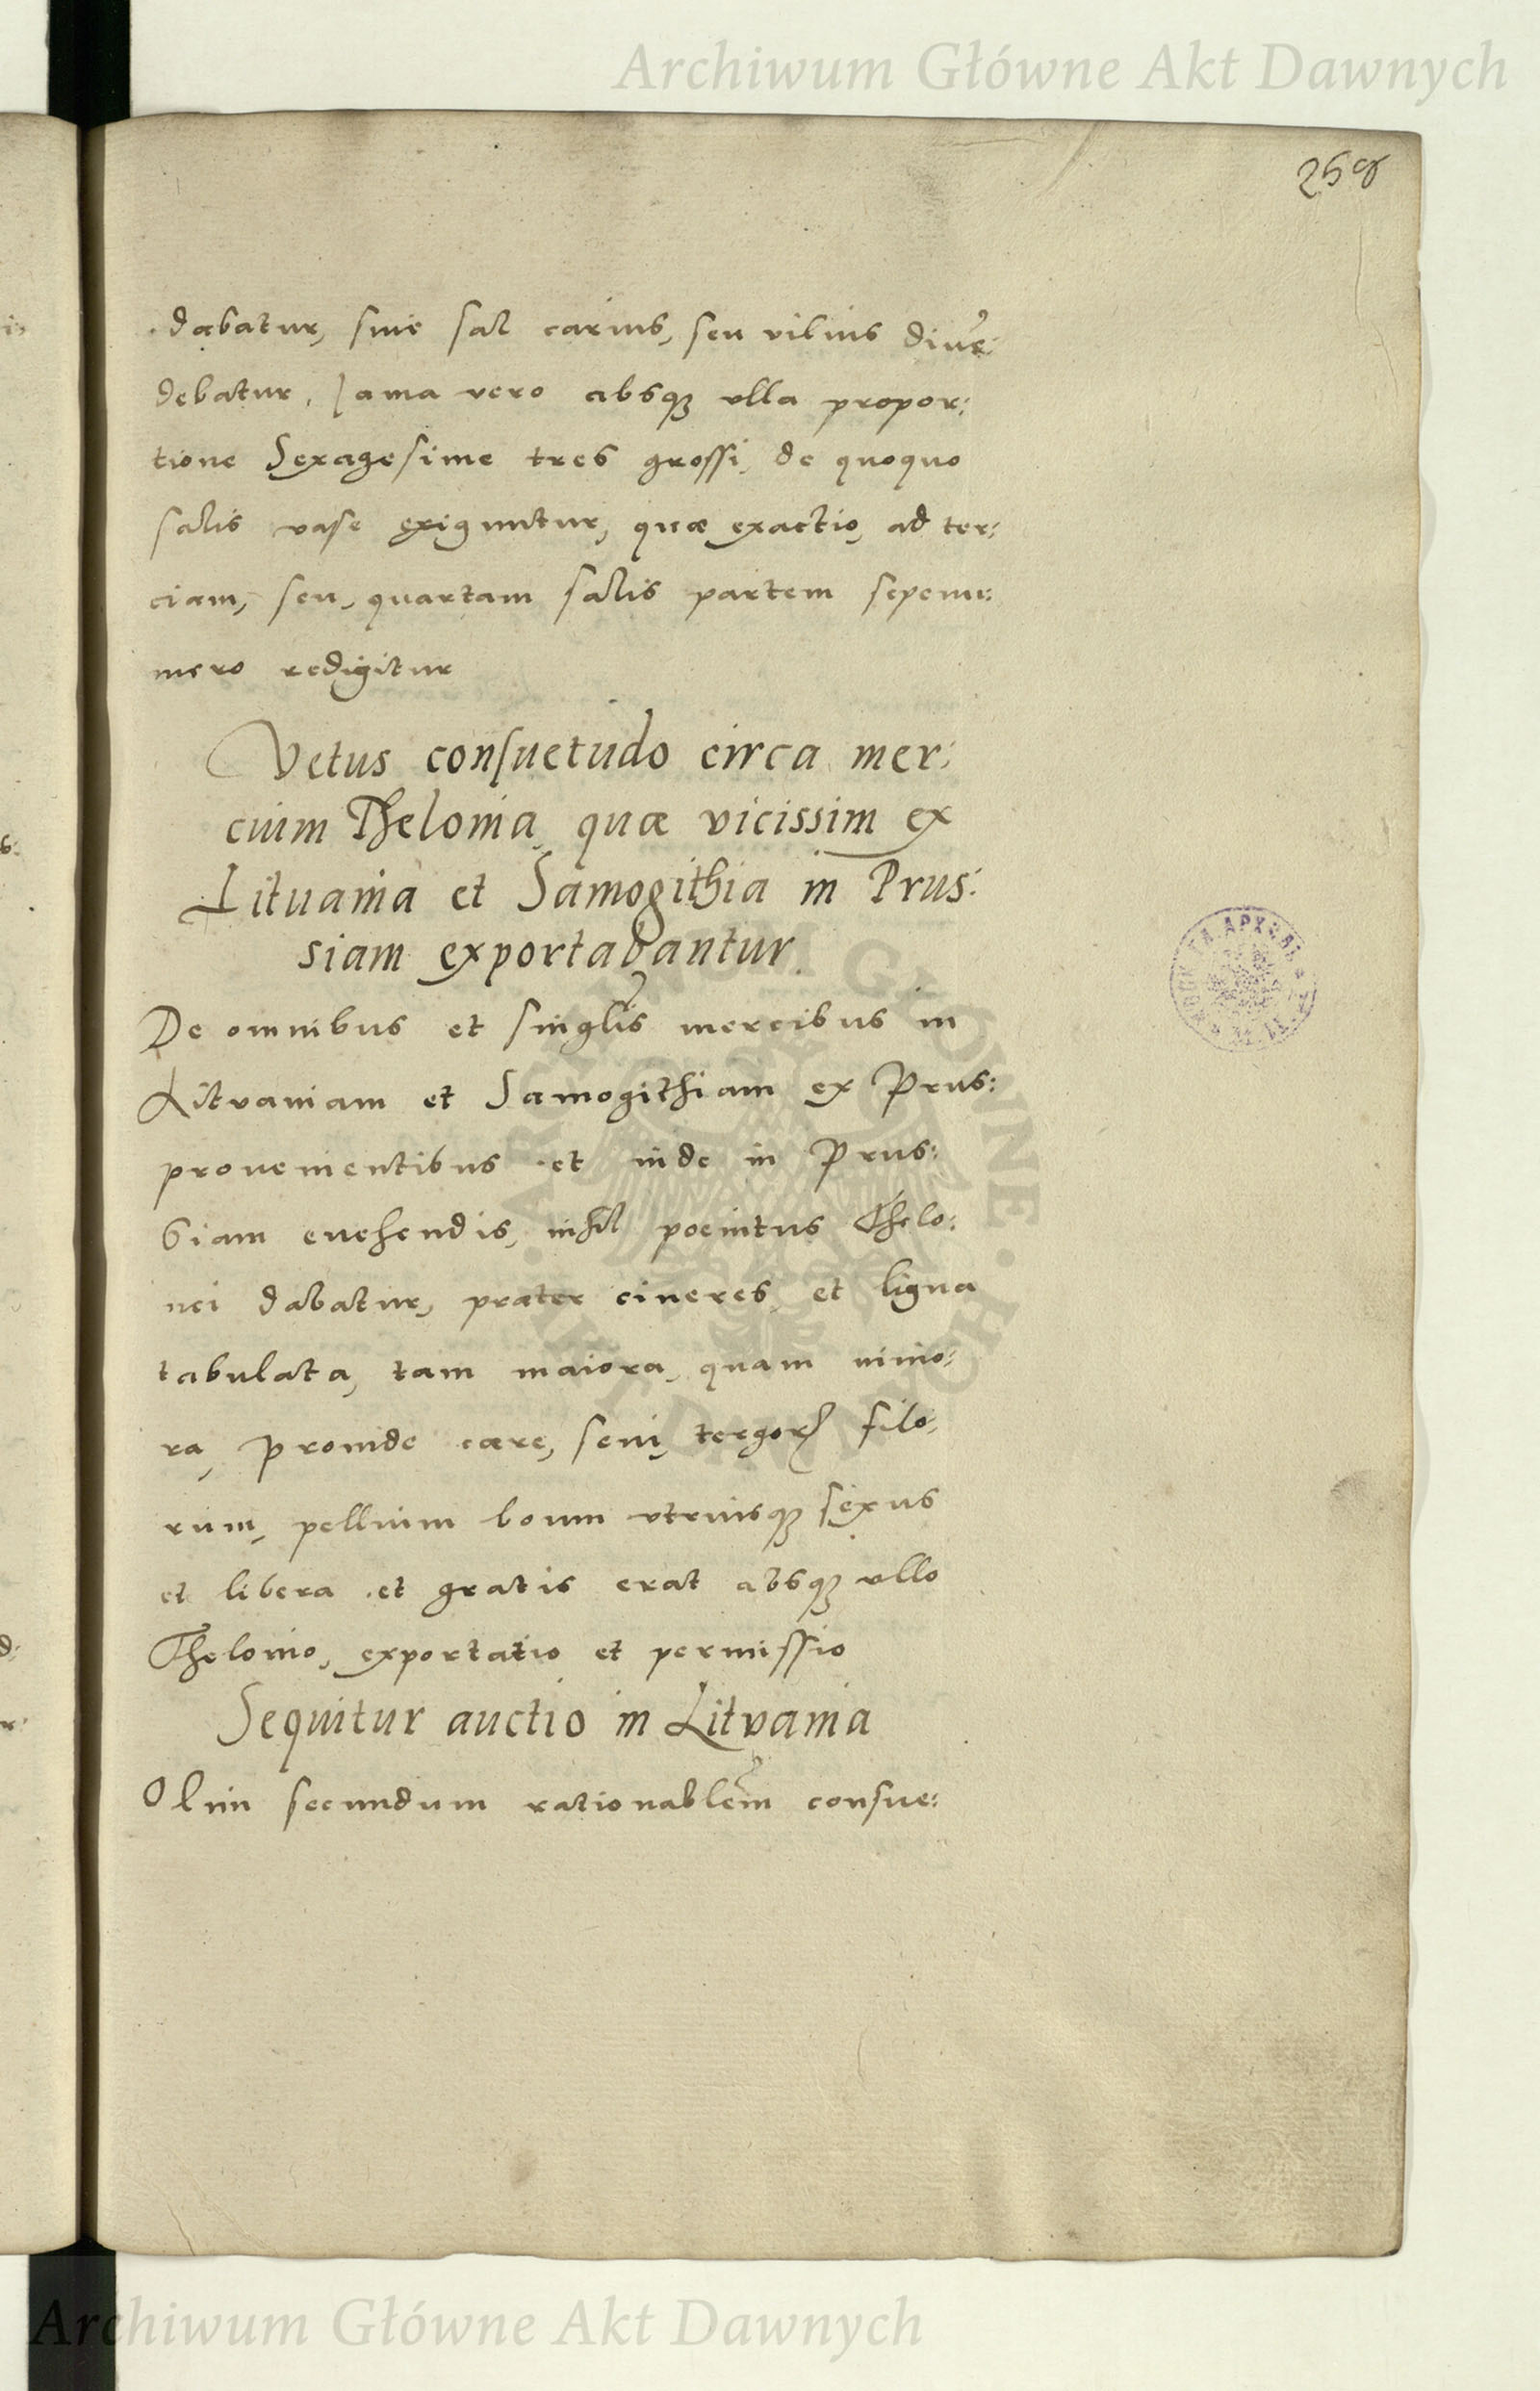 Archiwum Główne Akt Dawnych
258
dabatur, siue sal carius, seu vilius diue:
debatur, Jama vero absq3 vlla propor:
tione Sexagesime tres grossi, de quoquo
salis vase exiguntur, quæ exactio, ad ter:
ciam, seu, quartam salis partem sepenu:
mero redigitur
Vetus consuetudo circa mer:
cium Thelonia, quæ vicissim ex
Lituania et Samogithia in Prus:
siam exportabantur.
De omnibus et singlis mercibus in
Litvaniam et Samogithiam ex Prus:
prouenientibus et inde in Prus:
siam euehendis, nihil poenitus Thelo:
nei dabatur, præter cineres et ligna
tabulata, tam maiora, quam mino:
ra, proinde cære, seui, tergor filo:
rum, pellium boum vtriusq3 sexus
et libera et gratis erat absq3 vllo
Thelonio, exportatio et permissio
Sequitur auctio in Litvania
Olim secundum rationablem consue:
Archiwum Główne Akt Dawnych